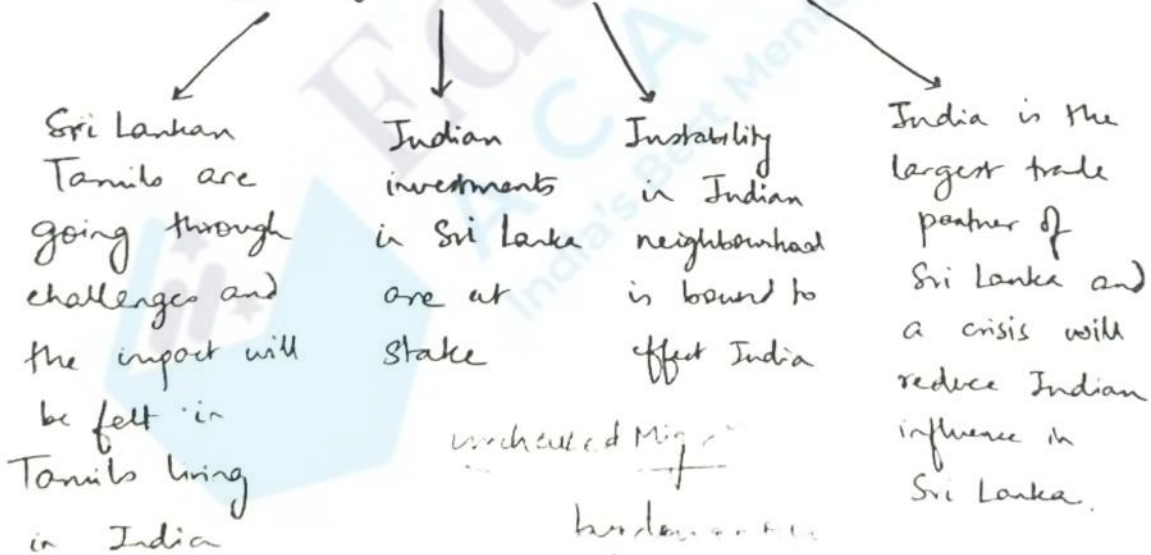 Sri Lankan
Tamils are
going through
challenges and
the impact will
be felt in
Tamils living
in India
Indian
investments
in Sri Lanka
are at
stake
Instability
in Indian
neighbourhood
is bound to
effect India
India is the
largest trade
partner of
Sri Lanka and
a crisis will
reduce Indian
influence in
Sri Lanka.
ACA
India's Best Mento